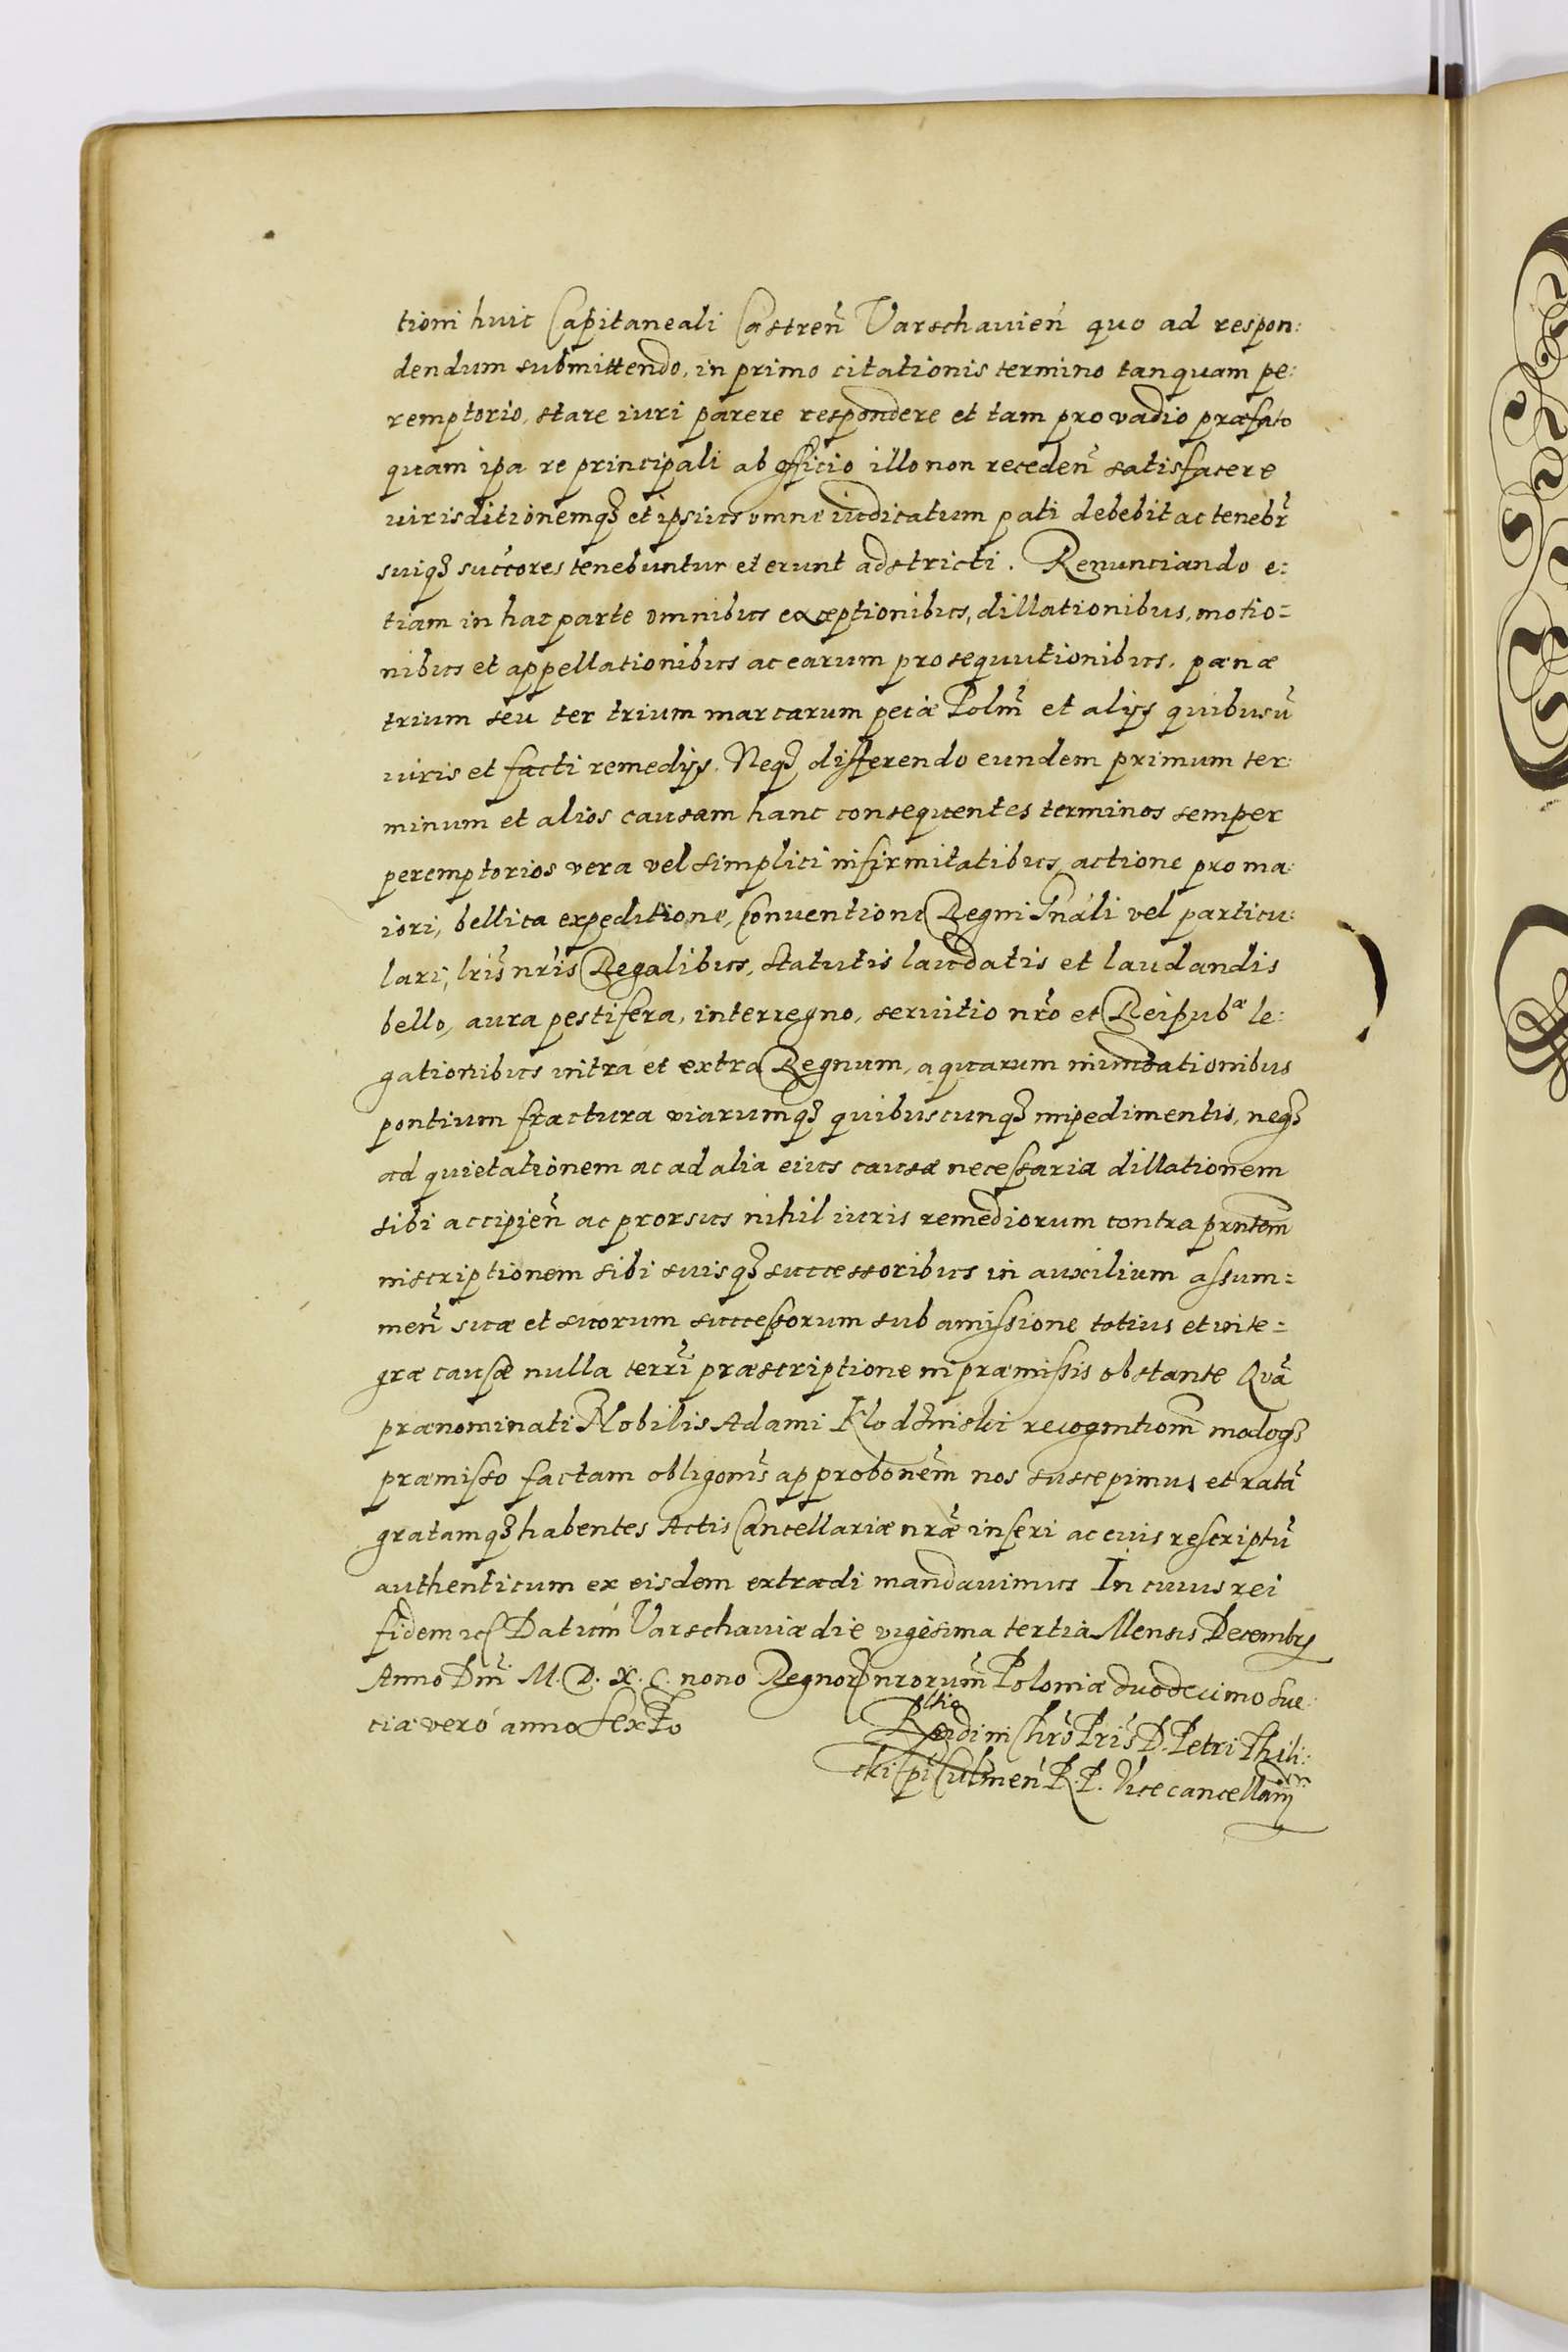 tioni huic Capitaneali Castren̄ Varschauien̄ quo ad respon:
dendum submittendo, in primo citationis termino tanquam pe:
remptorio, stare iuri parere respondere et tam pro vadio præfato
quam ipa re principali ab officio illo non receden̄ satisfacere
iurisditionemqꝫ et ipsius omne iudicatum pati debebit ac tenebr̄
suiqꝫ succores tenebuntur et erunt adstricti. Renunciando e:
tiam in hac parte omnibus exceptionibus, dillationibus, motio=
nibus et appellationibus ac earum prosequutionibus, pœnæ
trium seu ter trium marcarum peciæ Polm̄ et alijs quibusū
iuris et facti remedijs. Neqꝫ differendo eundem primum ter:
minum et alios causam hanc consequentes terminos semper
peremptorios vera vel simplici infirmitatibus, actione pro ma:
iori, bellica expeditione, Conuentione Regni Gnāli vel particu:
lari, lrīs nrīs Regalibus, statutis laudatis et laudandis
bello, aura pestifera, interregno, seruitio nrō et Reipubᵃ le:
gationibus intra et extra Regnum, aquarum inundationibus
pontium fractura viarumqꝫ quibuscunqꝫ impedimentis, neqꝫ
ad quietationem ac ad alia eius causæ necessaria dillationem
sibi accipien̄ ac prorsus nihil iuris remediorum contra prntem̄
inscriptionem sibi suisqꝫ successoribus in auxilium assum=
men̄ suæ et suorum successorum sub amissione totius et inte=
græ causæ nulla terrī præscriptione in præmissis obstante Quā
prænominati Nobilis Adami Klodzinski recognitiom̄ modoqꝫ
præmisso factam obligonīs approbonēm nos suscepimus et ratā
gratamqꝫ habentes Actis Cancellariæ nrāe inseri ac eius rescriptū
authenticum ex eisdem extradi mandauimus In cuius rei
fidem etc Datum Varschauiæ die vigesima tertia Mensis Decembrs
Anno Dnī M. D. X. C. nono Regnorꝫ nrorum̄ Poloniæ duodecimo Sue:
ciæ vero anno sexto
Rltio
Rdi in Chrō Prīs D. Petri Thili:
cki Epī Culmen̄ R. P. Vicecancellarij